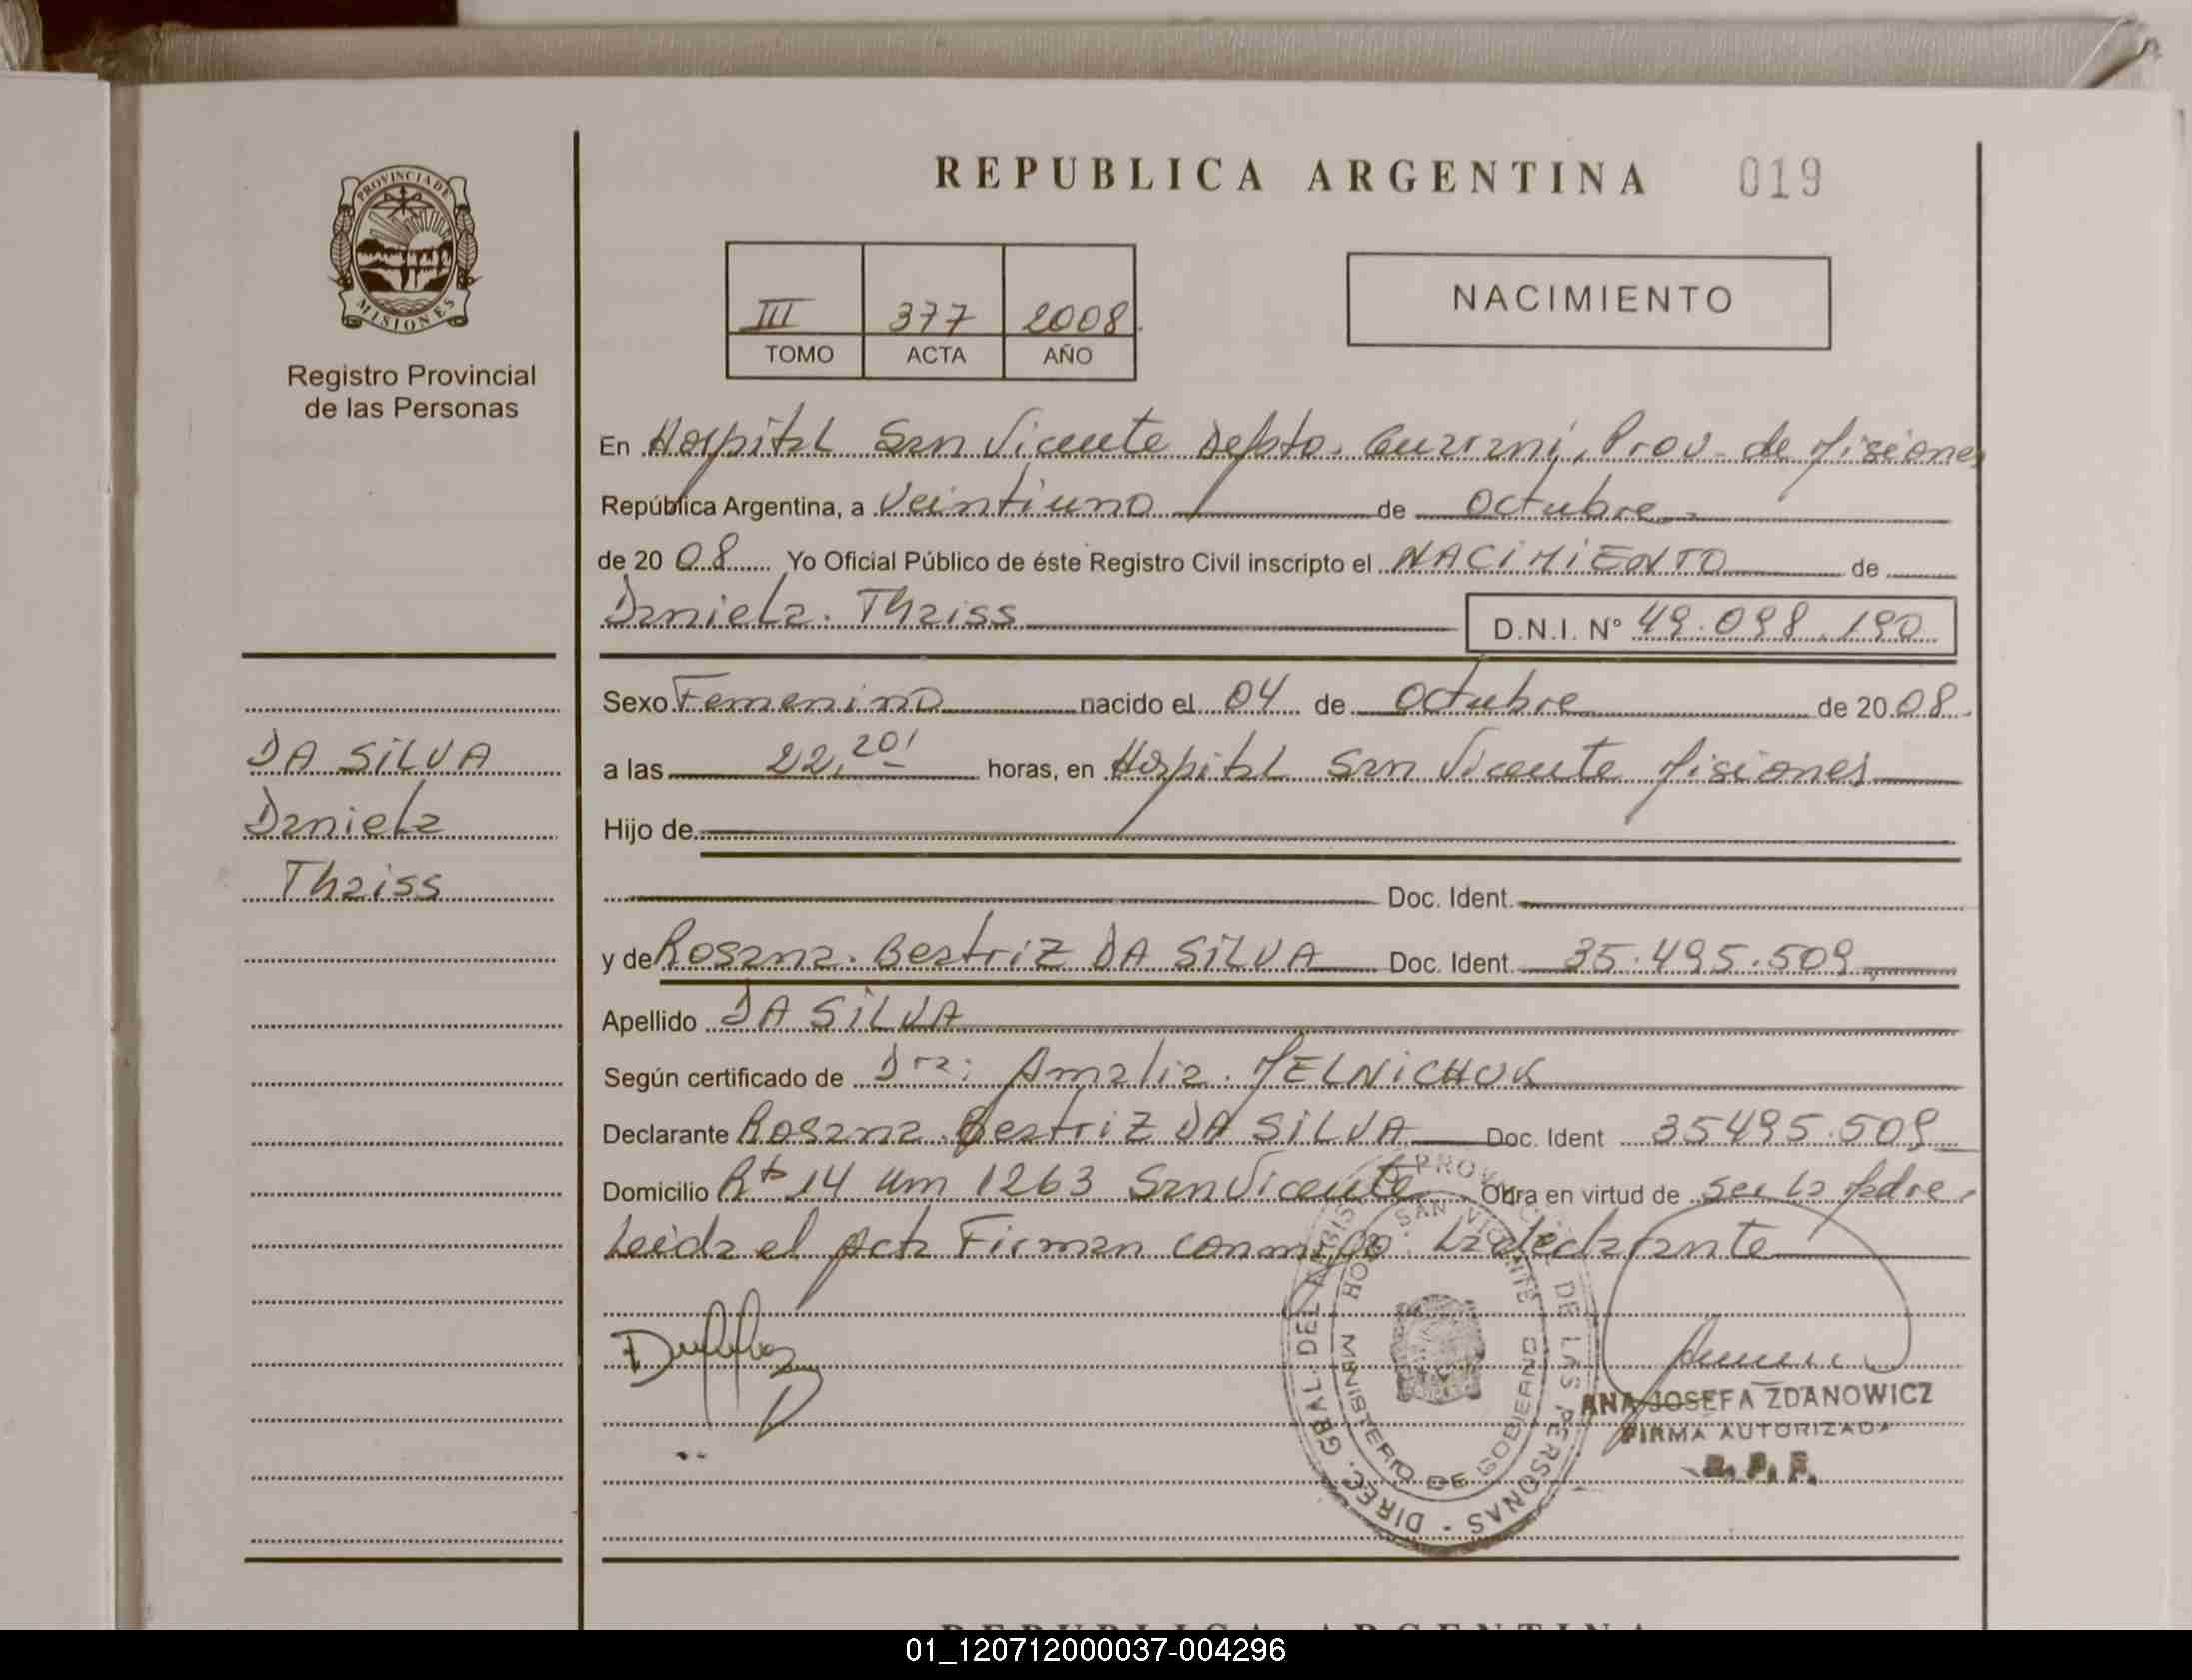 REPUBLICA ARGENTINA 019
PROVINCIA DE
MISIONES
Registro Provincial
de las Personas
III 377 2008
TOMO ACTA AÑO
NACIMIENTO
En Hospital San Vicente Depto. Guarani, Prov. de Misiones
República Argentina, a Veintiuno de Octubre
de 2008 Yo Oficial Público de éste Registro Civil inscripto el NACIMIENTO de
Daniela. Thaiss D.N.I. N° 49.098.190
Sexo Femenino nacido el 04 de Octubre de 2008
a las 22,20' horas, en Hospital San Vicente Misiones
Hijo de
Doc. Ident.
y de Rosana. Beatriz DA SILVA Doc. Ident. 35.495.509
Apellido DA SILVA
Según certificado de Dra: Amalia. MELNICHUK
Declarante Rosana. Beatriz DA SILVA Doc. Ident 35495.509
Domicilio Rta 14 Km 1263 San Vicente Obra en virtud de ser la Madre.
Leida el Acta Firman conmigo. La declarante
DA SILVA
Daniela
Thaiss
HOSP. SAN VICENTE
MINISTERIO DE GOBIERNO
DIREC. GRAL. DEL REGISTRO PROVINCIAL DE LAS PERSONAS
ANA JOSEFA ZDANOWICZ
FIRMA AUTORIZADA
R. P. P.
REPUBLICA ARGENTINA
01_120712000037-004296